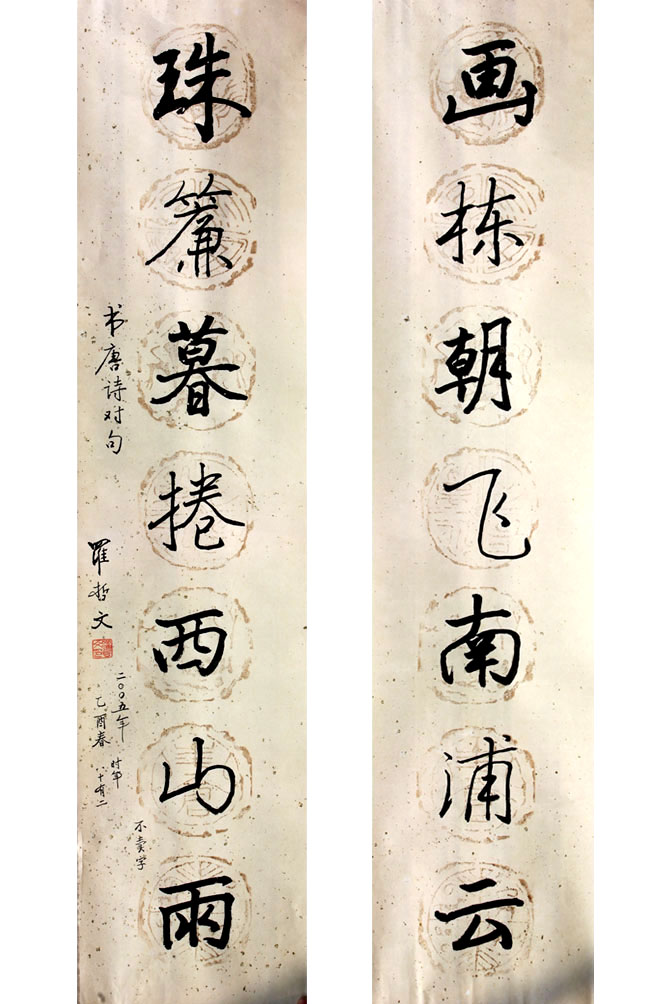 画栋朝飞南浦云
珠簾暮捲西山雨
书唐诗对句
罗哲文
二〇〇五年
乙酉春
时年
八十有二
不卖字